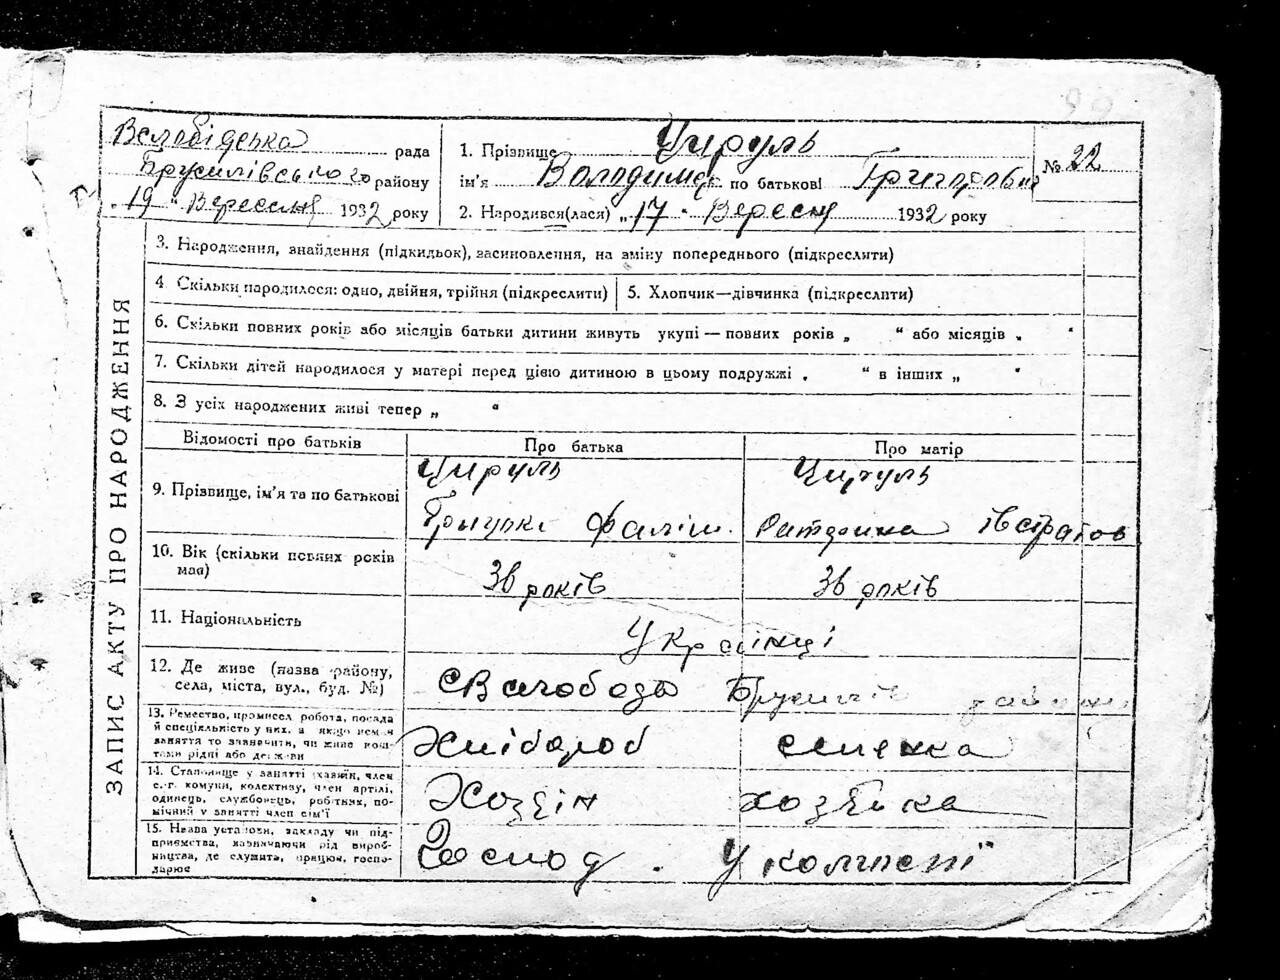 рада
Брусилівського району
„19“ Вересня 1932 року
1. Прізвище Цируль
ім'я Володимер по батькові Григорович
2. Народився(лася) „17“ Вересня 1932 року
№ 22
ЗАПИС АКТУ ПРО НАРОДЖЕННЯ
3. Народження, знайдення (підкидьок), засиновлення, на зміну попереднього (підкреслити)
4. Скільки народилося: одно, двійня, трійня (підкреслити)
5. Хлопчик—дівчинка (підкреслити)
6. Скільки повних років або місяців батьки дитини живуть укупі — повних років „ “ або місяців „ “
7. Скільки дітей народилося у матері перед цією дитиною в цьому подружжі „ “ в інших „ “
8. З усіх народжених живі тепер „ “
Відомості про батьків
Про батька
Про матір
9. Прізвище, ім'я та по батькові
Цируль
Цируль
10. Вік (скільки повних років має)
36 років
36 років
11. Національність
Українці
12. Де живе (назва району,
села, міста, вул., буд. №)
13. Ремество, промисел робота, посада
й спеціяльність у них, а якщо немає
заняття то зазначити, чи живе кош-
тами рідні або держави
Хлібороб
14. Становище у занятті (хазяїн, член
с.-г. комуни, колективу, член артілі,
одинець, службовець, робітник, по-
мічний у занятті член сім'ї
Хозяін
хозяйка
15. Назва установи, закладу чи під-
приємства, зазначаючи рід вироб-
ництва, де служить, працює, госпо-
дарює
Господ. У колгоспі